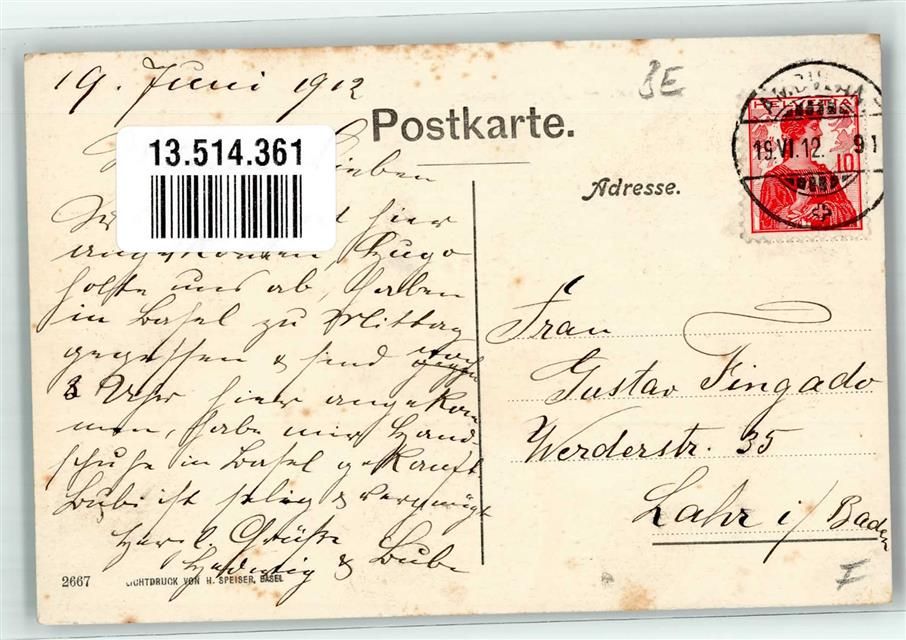 19. Juni 1912
BE
Postkarte.
13.514.361
Lieben
hier
angekommen, Hugo
holte uns ab, haben
in Basel zu Mittag
gegessen & sind nach
3 Uhr hier angekom
men, habe mir Hand
schuhe in Basel gekauft.
Bubi ist selig & vergnügt
Herzl. Grüße
Hedwig & Bubi
2667 LICHTDRUCK VON H. SPEISER, BASEL
Adresse.
HELVETIA
19.VI.12. 9
10
Frau
Gustav Fingado
Werderstr. 35
Lahr i/ Baden
I